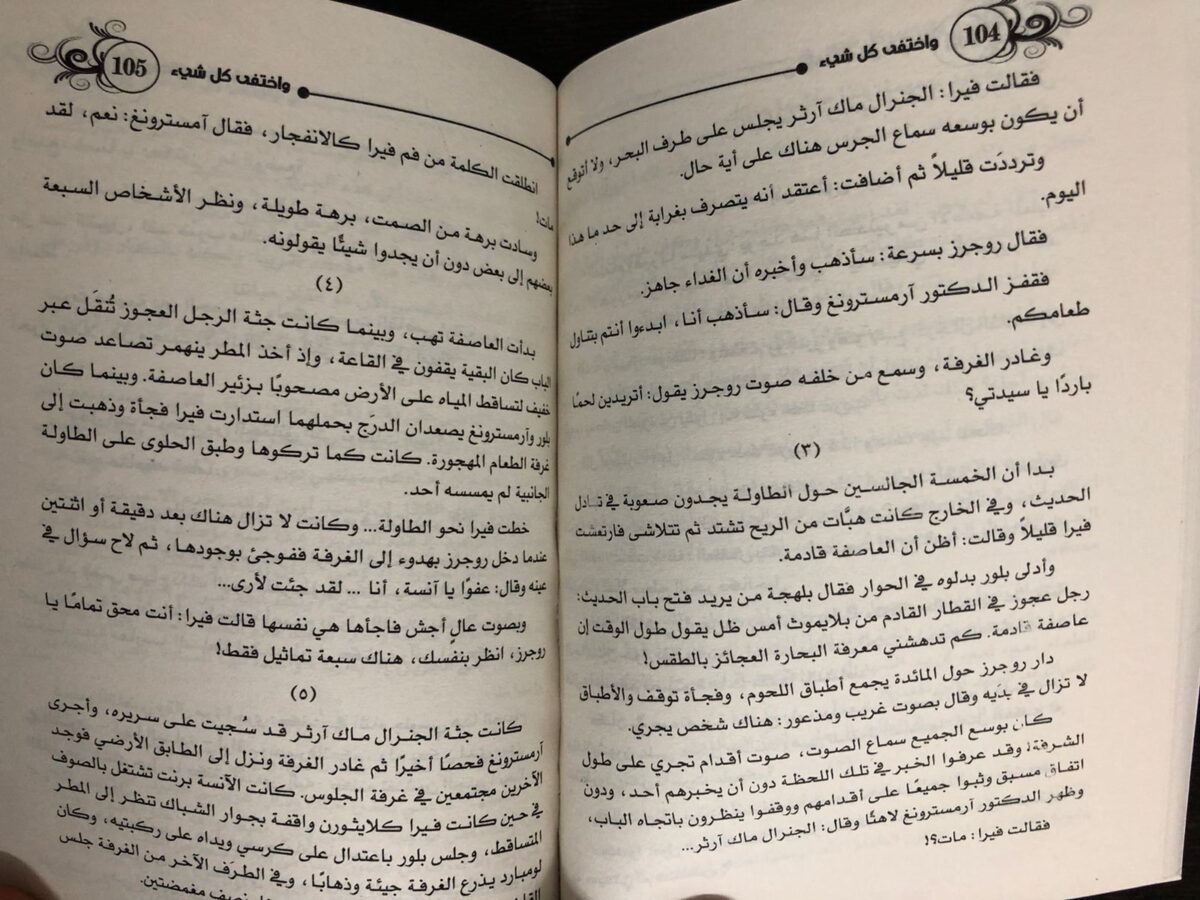 104
واختفى كل شيء
فقالت فيرا: الجنرال ماك آرثر يجلس على طرف البحر، ولا أتوقع
أن يكون بوسعه سماع الجرس هناك على أية حال.
وترددَت قليلاً ثم أضافت: أعتقد أنه يتصرف بغرابة إلى حد ما هذا
اليوم.
فقال روجرز بسرعة: سأذهب وأخبره أن الغداء جاهز.
فقفز الدكتور آرمسترونغ وقال: سأذهب أنا، ابدءوا أنتم بتناول
طعامكم.
وغادر الغرفة، وسمع من خلفه صوت روجرز يقول: أتريدين لحمًا
باردًا يا سيدتي؟
(٣)
بدا أن الخمسة الجالسين حول الطاولة يجدون صعوبة في تبادل
الحديث، وفي الخارج كانت هبَّات من الريح تشتد ثم تتلاشى فارتعشت
فيرا قليلاً وقالت: أظن أن العاصفة قادمة.
وأدلى بلور بدلوه في الحوار فقال بلهجة من يريد فتح باب الحديث:
رجل عجوز في القطار القادم من بلايموث أمس ظل يقول طول الوقت إن
عاصفة قادمة. كم تدهشني معرفة البحارة العجائز بالطقس!
دار روجرز حول المائدة يجمع أطباق اللحوم، وفجأة توقف والأطباق
لا تزال في يدَيه وقال بصوت غريب ومذعور: هناك شخص يجري.
كان بوسع الجميع سماع الصوت، صوت أقدام تجري على طول
الشرفة! وقد عرفوا الخبر في تلك اللحظة دون أن يخبرهم أحد، ودون
اتفاق مسبق وثبوا جميعًا على أقدامهم ووقفوا ينظرون باتجاه الباب،
وظهر الدكتور آرمسترونغ لاهثًا وقال: الجنرال ماك آرثر...
فقالت فيرا: مات؟!
105
واختفى كل شيء
انطلقت الكلمة من فم فيرا كالانفجار، فقال آمسترونغ: نعم، لقد
مات!
وسادت برهة من الصمت، برهة طويلة، ونظر الأشخاص السبعة
بعضهم إلى بعض دون أن يجدوا شيئًا يقولونه.
(٤)
بدأت العاصفة تهب، وبينما كانت جثة الرجل العجوز تُنقَل عبر
الباب كان البقية يقفون في القاعة، وإذ أخذ المطر ينهمر تصاعد صوت
خفيف لتساقط المياه على الأرض مصحوبًا بزئير العاصفة. وبينما كان
بلور وآرمسترونغ يصعدان الدرَج بحملهما استدارت فيرا فجأة وذهبت إلى
غرفة الطعام المهجورة. كانت كما تركوها وطبق الحلوى على الطاولة
الجانبية لم يمسسه أحد.
خطت فيرا نحو الطاولة... وكانت لا تزال هناك بعد دقيقة أو اثنتين
عندما دخل روجرز بهدوء إلى الغرفة ففوجئ بوجودها، ثم لاح سؤال في
عينه وقال: عفوًا يا آنسة، أنا ... لقد جئت لأرى...
وبصوت عالٍ أجش فاجأها هي نفسها قالت فيرا: أنت محق تمامًا يا
روجرز، انظر بنفسك، هناك سبعة تماثيل فقط!
(٥)
كانت جثة الجنرال ماك آرثر قد سُجيت على سريره، وأجرى
آرمسترونغ فحصًا أخيرًا ثم غادر الغرفة ونزل إلى الطابق الأرضي فوجد
الآخرين مجتمعين في غرفة الجلوس. كانت الآنسة برنت تشتغل بالصوف
في حين كانت فيرا كلايثورن واقفة بجوار الشباك تنظر إلى المطر
المتساقط، وجلس بلور باعتدال على كرسي ويداه على ركبتيه، وكان
لومبارد يذرع الغرفة جيئة وذهابًا، وفي الطرَف الآخر من الغرفة جلس
نصف مغمضتين.